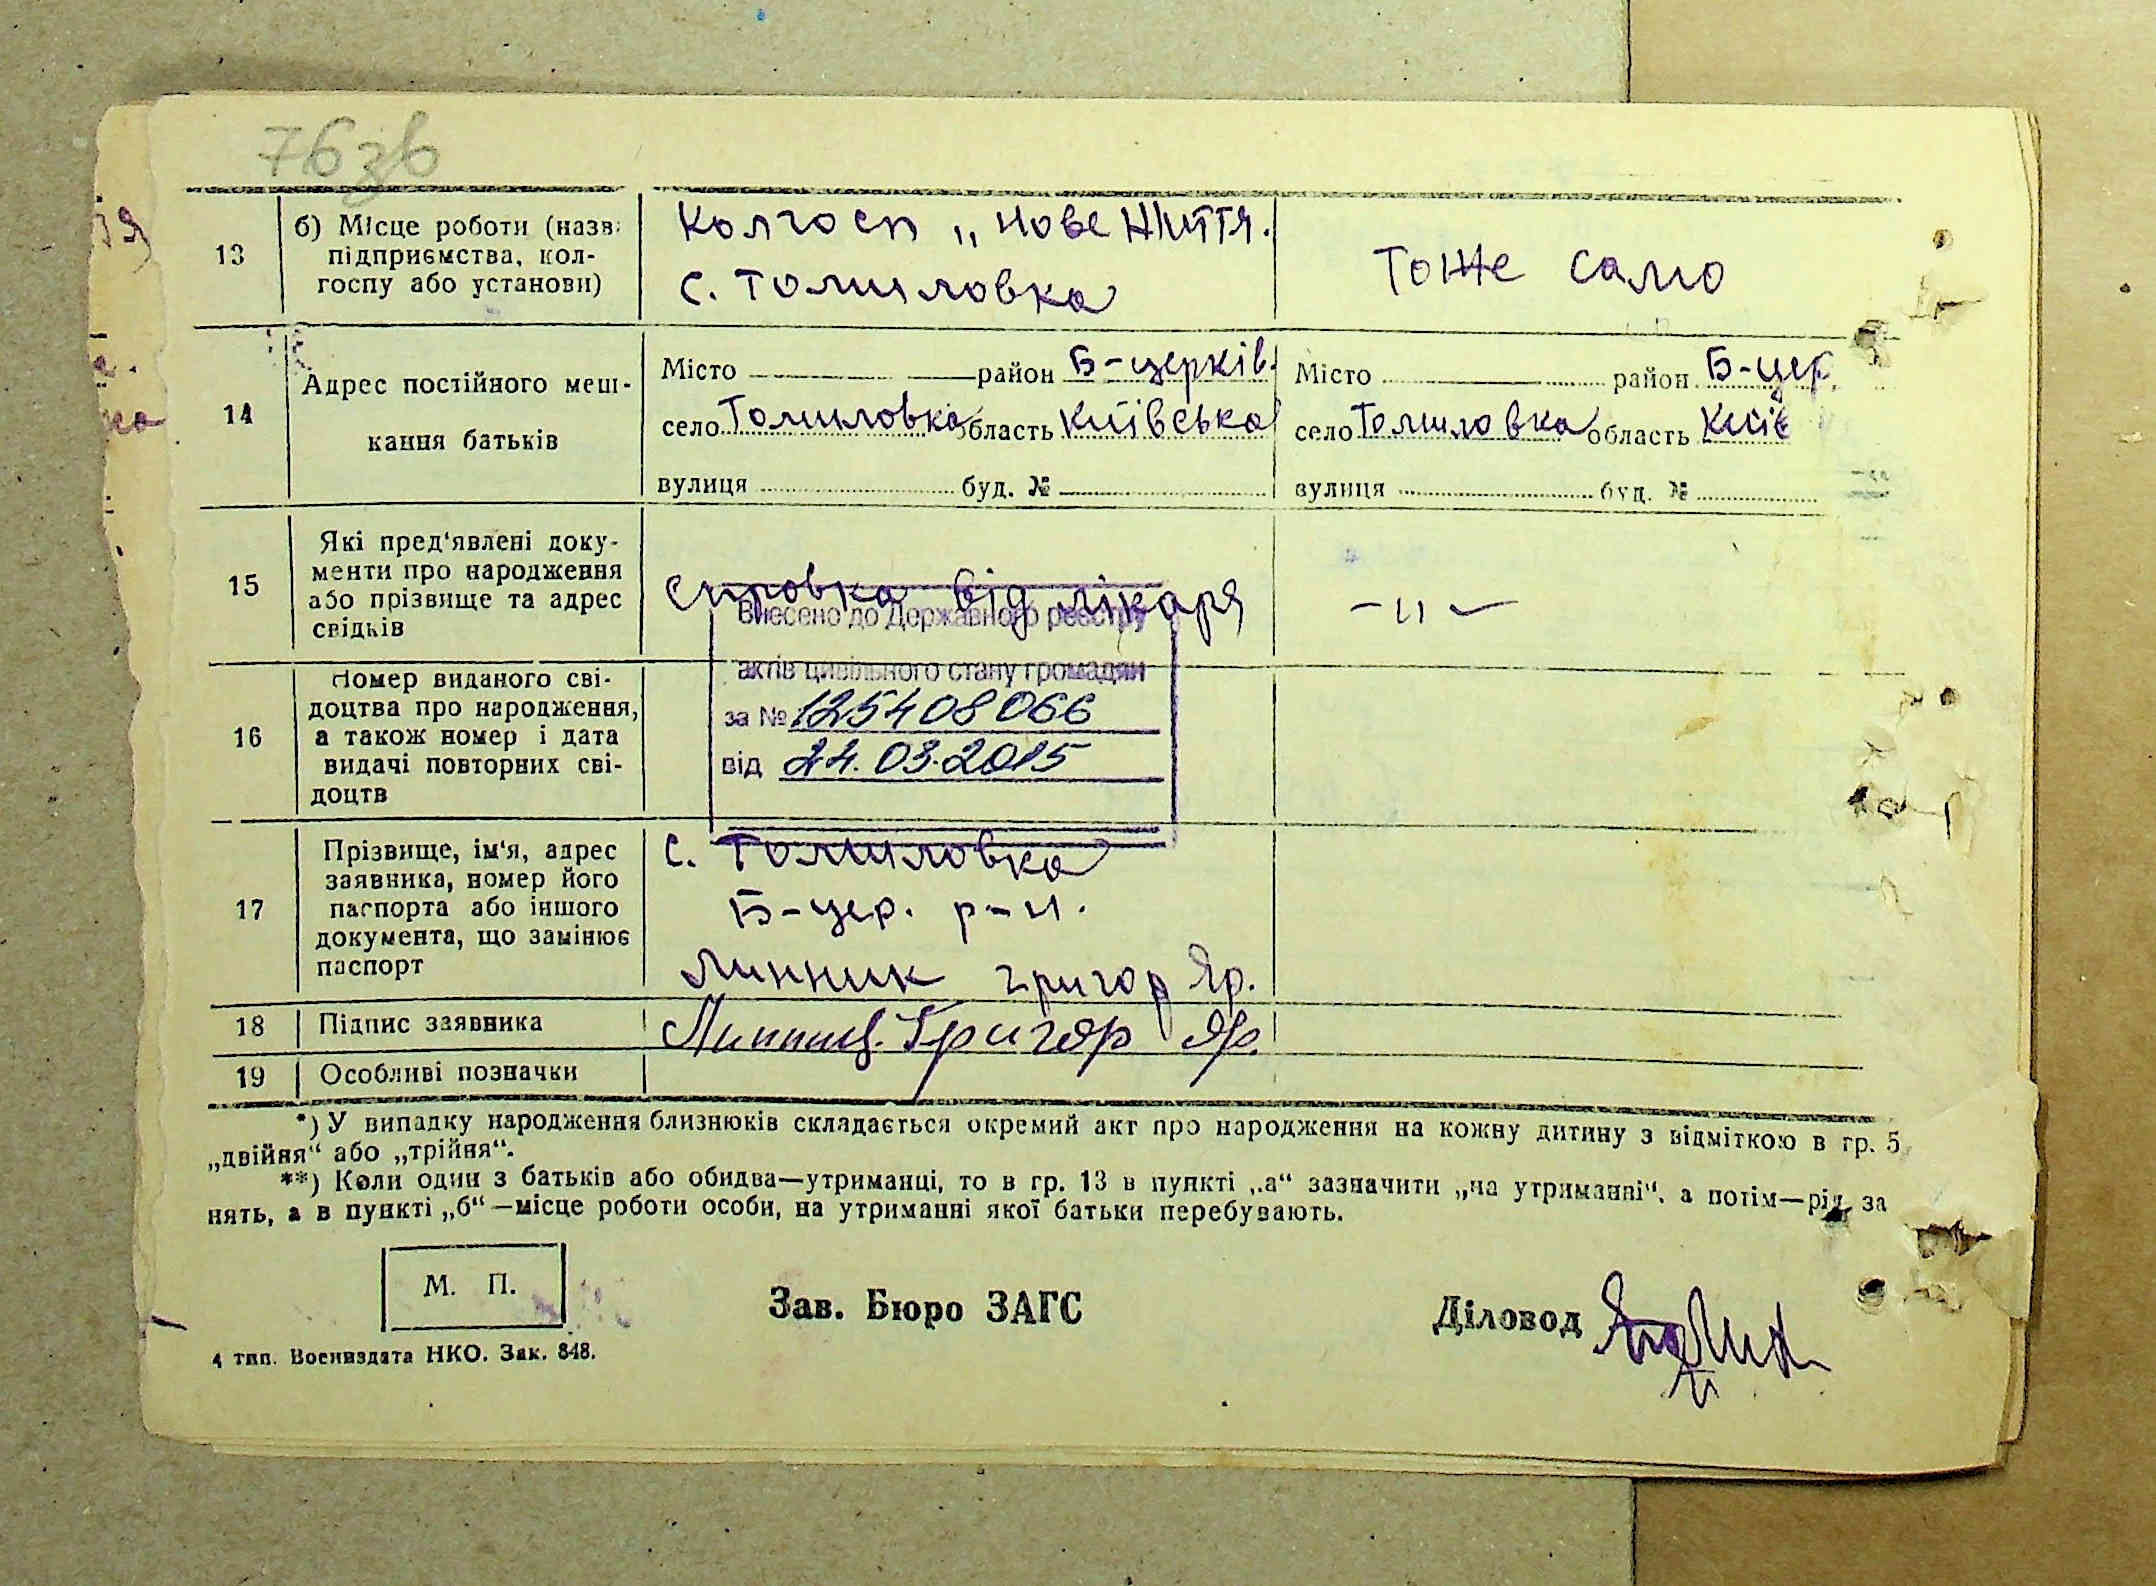 76 зв
13
б) Місце роботи (назв
підприємства, кол-
госпу або установи)
Колгосп „Нове життя.
с. Томиловка
Тоже само
14
Адрес постійного меш-
кання батьків
Місто район Б-церків.
село Томиловка область Київська
вулиця буд. №
Місто район Б-цер.
село Томиловка область Київ
вулиця буд. №
15
Які пред'явлені доку-
менти про народження
або прізвище та адрес
свідків
Справка від лікаря
– „ –
Внесено до Державного реєстру
актів цивільного стану громадян
за № 125408066
від 24.03.2015
16
Номер виданого сві-
доцтва про народження,
а також номер і дата
видачі повторних сві-
доцтв
17
Прізвище, ім'я, адрес
заявника, номер його
паспорта або іншого
документа, що замінює
паспорт
с. Томиловка
Б-цер. р-н.
Линник Григор Яр.
18
Підпис заявника
Григор Яр.
19
Особливі позначки
*) У випадку народження близнюків складається окремий акт про народження на кожну дитину з відміткою в гр. 5
„двійня“ або „трійня“.
**) Коли один з батьків або обидва—утриманці, то в гр. 13 в пункті „а“ зазначити „на утриманні“, а потім—рід за
нять, а в пункті „б“—місце роботи особи, на утриманні якої батьки перебувають.
М. П.
Зав. Бюро ЗАГС
Діловод
4 тип. Воениздата НКО. Зак. 848.